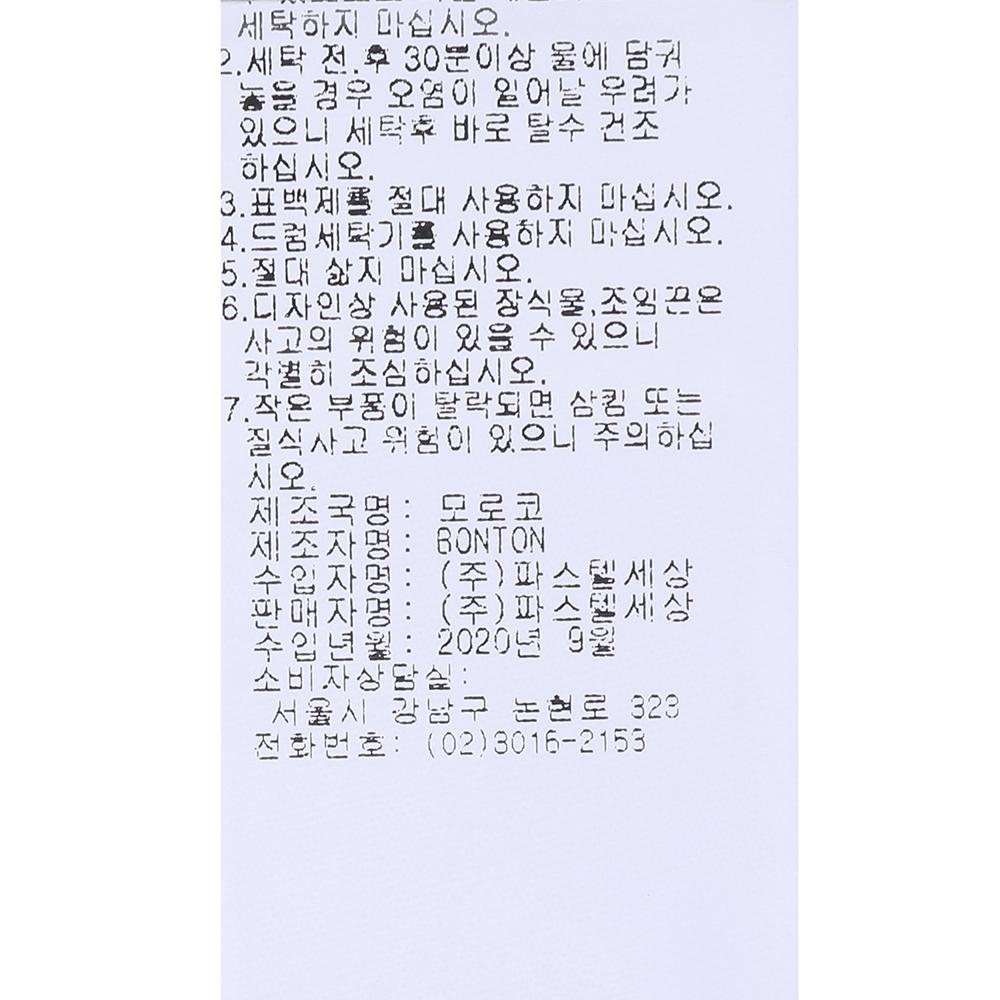 세탁하지 마십시오.
2.세탁 전.후 30분이상 물에 담궈
놓을 경우 오염이 일어날 우려가
있으니 세탁후 바로 탈수 건조
하십시오.
3.표백제를 절대 사용하지 마십시오.
4.드럼세탁기를 사용하지 마십시오.
5.절대 삶지 마십시오.
6.디자인상 사용된 장식물,조임끈은
사고의 위험이 있을 수 있으니
각별히 조심하십시오.
7.작은 부품이 탈락되면 삼킴 또는
질식사고 위험이 있으니 주의하십
시오.
제조국명: 모로코
제조자명: BONTON
수입자명: (주)파스텔세상
판매자명: (주)파스텔세상
수입년월: 2020년 9월
소비자상담실:
서울시 강남구 논현로 323
전화번호: (02)3016-2153